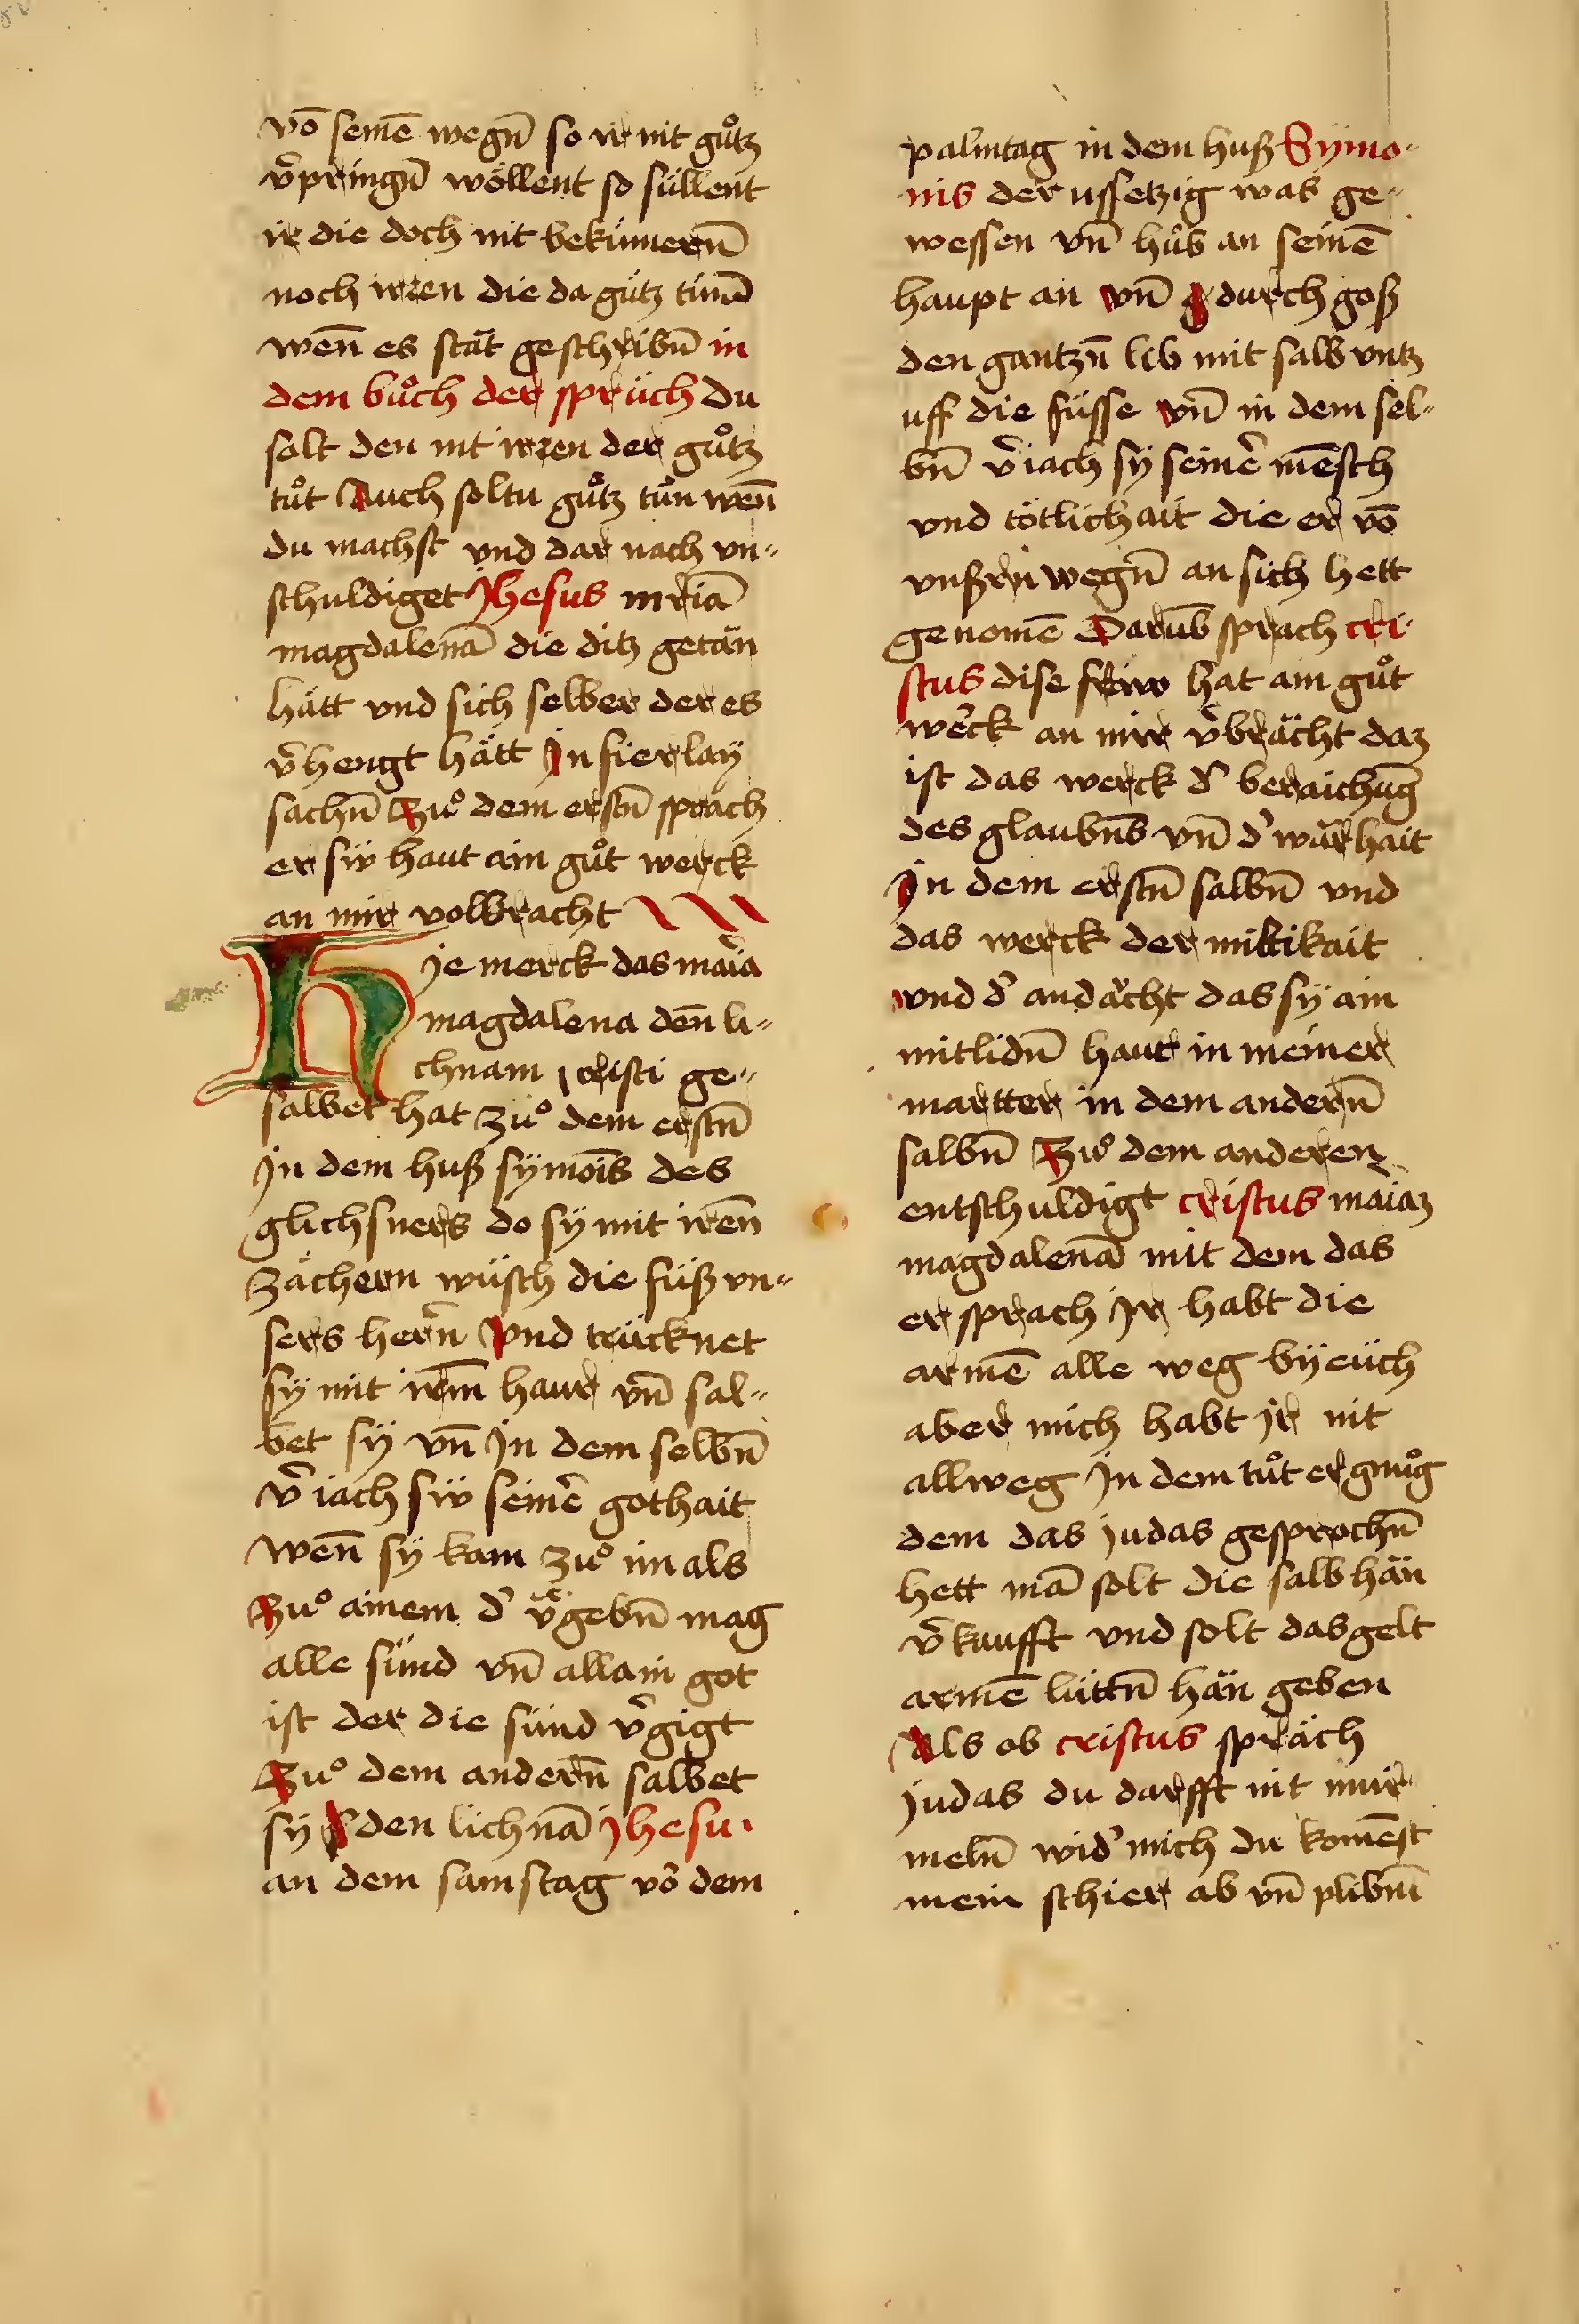 võ seinē wegn̄ so ir nit gůtz
v̉pringn̄ wöllent so süllent
ir die doch nit bekümern̄
noch irren die da gůtz tünd
wen̄ es stät geschribn̄ in
dem bůch der sprüch du
solt den nit irren der gůtz
tůt Auch soltu gůtz tůn wen̄
du machst und dar nach vn-
schuldiget Jhesus mriā
magdalenā die ditz getän
hätt und sich selber der es
v̉hengt hätt Jn fierlay
sachn̄ Zuͦ dem erstn̄ sprach
er siv haut ain gůt werck
an mir volbracht
Hje merck das maĩa
magdalena den̄ li-
chnam cristi ge-
salbet hat zuͦ dem erstn̄
Jn dem huß sÿmoĩs des
glichsners do sÿ mit iren̄
zächern wüsch die füß vn-
sers hern̄ Vnd trücknet
sÿ mit irem̄ haur vn̄ sal-
bet sÿ vn̄ Jn dem selbn̄
v̉iach siv seiner̄ gothait
wen̄ sÿ kam zuͦ im als
Zuͦ ainem d̉ v̉gebn̄ mag
alle sünd vn̄ allain got
ist der die sünd v̉gigt
Zuͦ dem andern̄ salbet
sÿ den lichnā jhesu
an dem samstag võ dem
palmtag in dem huß Sÿmo-
nis der ussetzig was ge-
wessen vn̄ hůb an seinē
haupt an vn̄ durch goß
den gantzn̄ lib mit salb vntz
uff die füsse vn̄ in dem sel-
bn̄ v̉iach sÿ seiner̄ mēsch
und tötlichait die er võ
vnßrn wegn̄ an sich hett
genomē Darūb sprach cri-
stus dise frow hat ain gůt
werck an mir v̉brächt daz
ist das werck d̉ beraichūg
des glaubn̄s vn̄ d̉ wärhait
Jn dem erstn̄ salbn̄ und
das werck der miltikait
und d̉ andächt das sÿ ain
mitlidn̄ haut in meiner
martter in dem andern̄
salbn̄ Zuͦ dem anderen
entschuldigt cristus maĩaz
magdalenā mit dem das
er sprach Jr habt die
armē alle weg bÿ eüch
aber mich habt jr nit
allweg Jn dem tůt er gnůg
dem das judas gesprochn̄
hett mā solt die salb hän
v̉kaufft und solt das gelt
armē lüttn̄ hän geben
Als ob cristus spräch
judas du darfft nit mur-
meln̄ wid̉ mich du komēst
mein schier ab vn̄ plibn̄